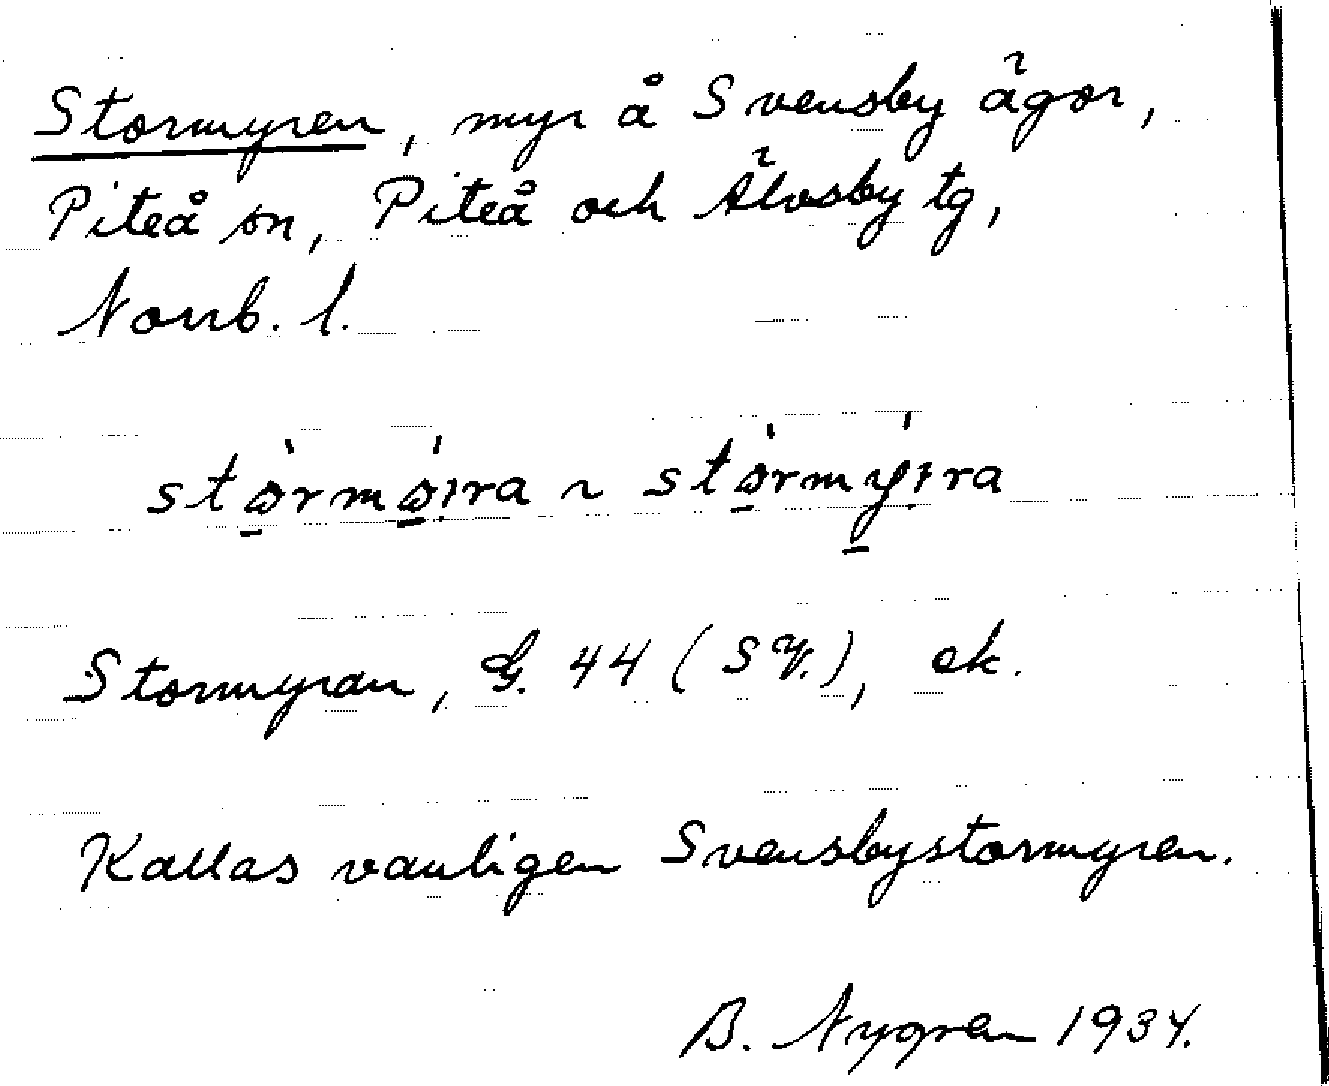 Stormyren, myr å Svensby ägor,
Piteå sn, Piteå och Älvsby tg,
Norrb. l.
stø̱̀rmǿ̱i̯ra ~ stø̱̀rmý̱i̯ra
Stormyran, G. 44 (SV.), ek.
Kallas vanligen Svensbystormyren.
B. Nygren 1934.